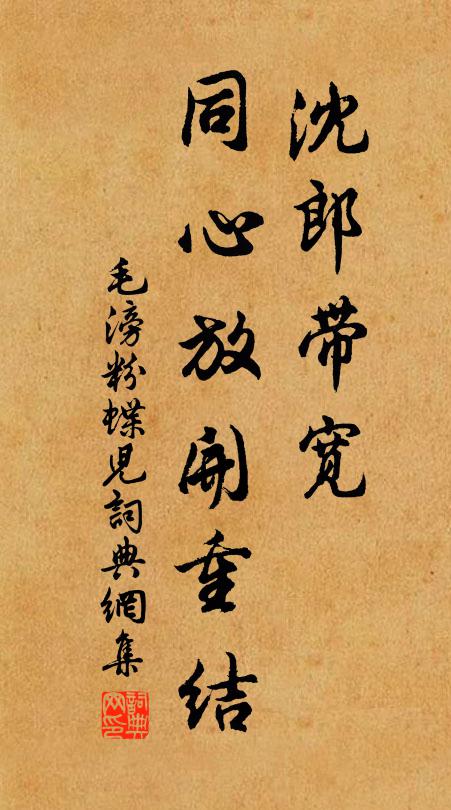 沈郎带宽
同心放開重结
毛滂粉蝶児詞典網集
詞典网印